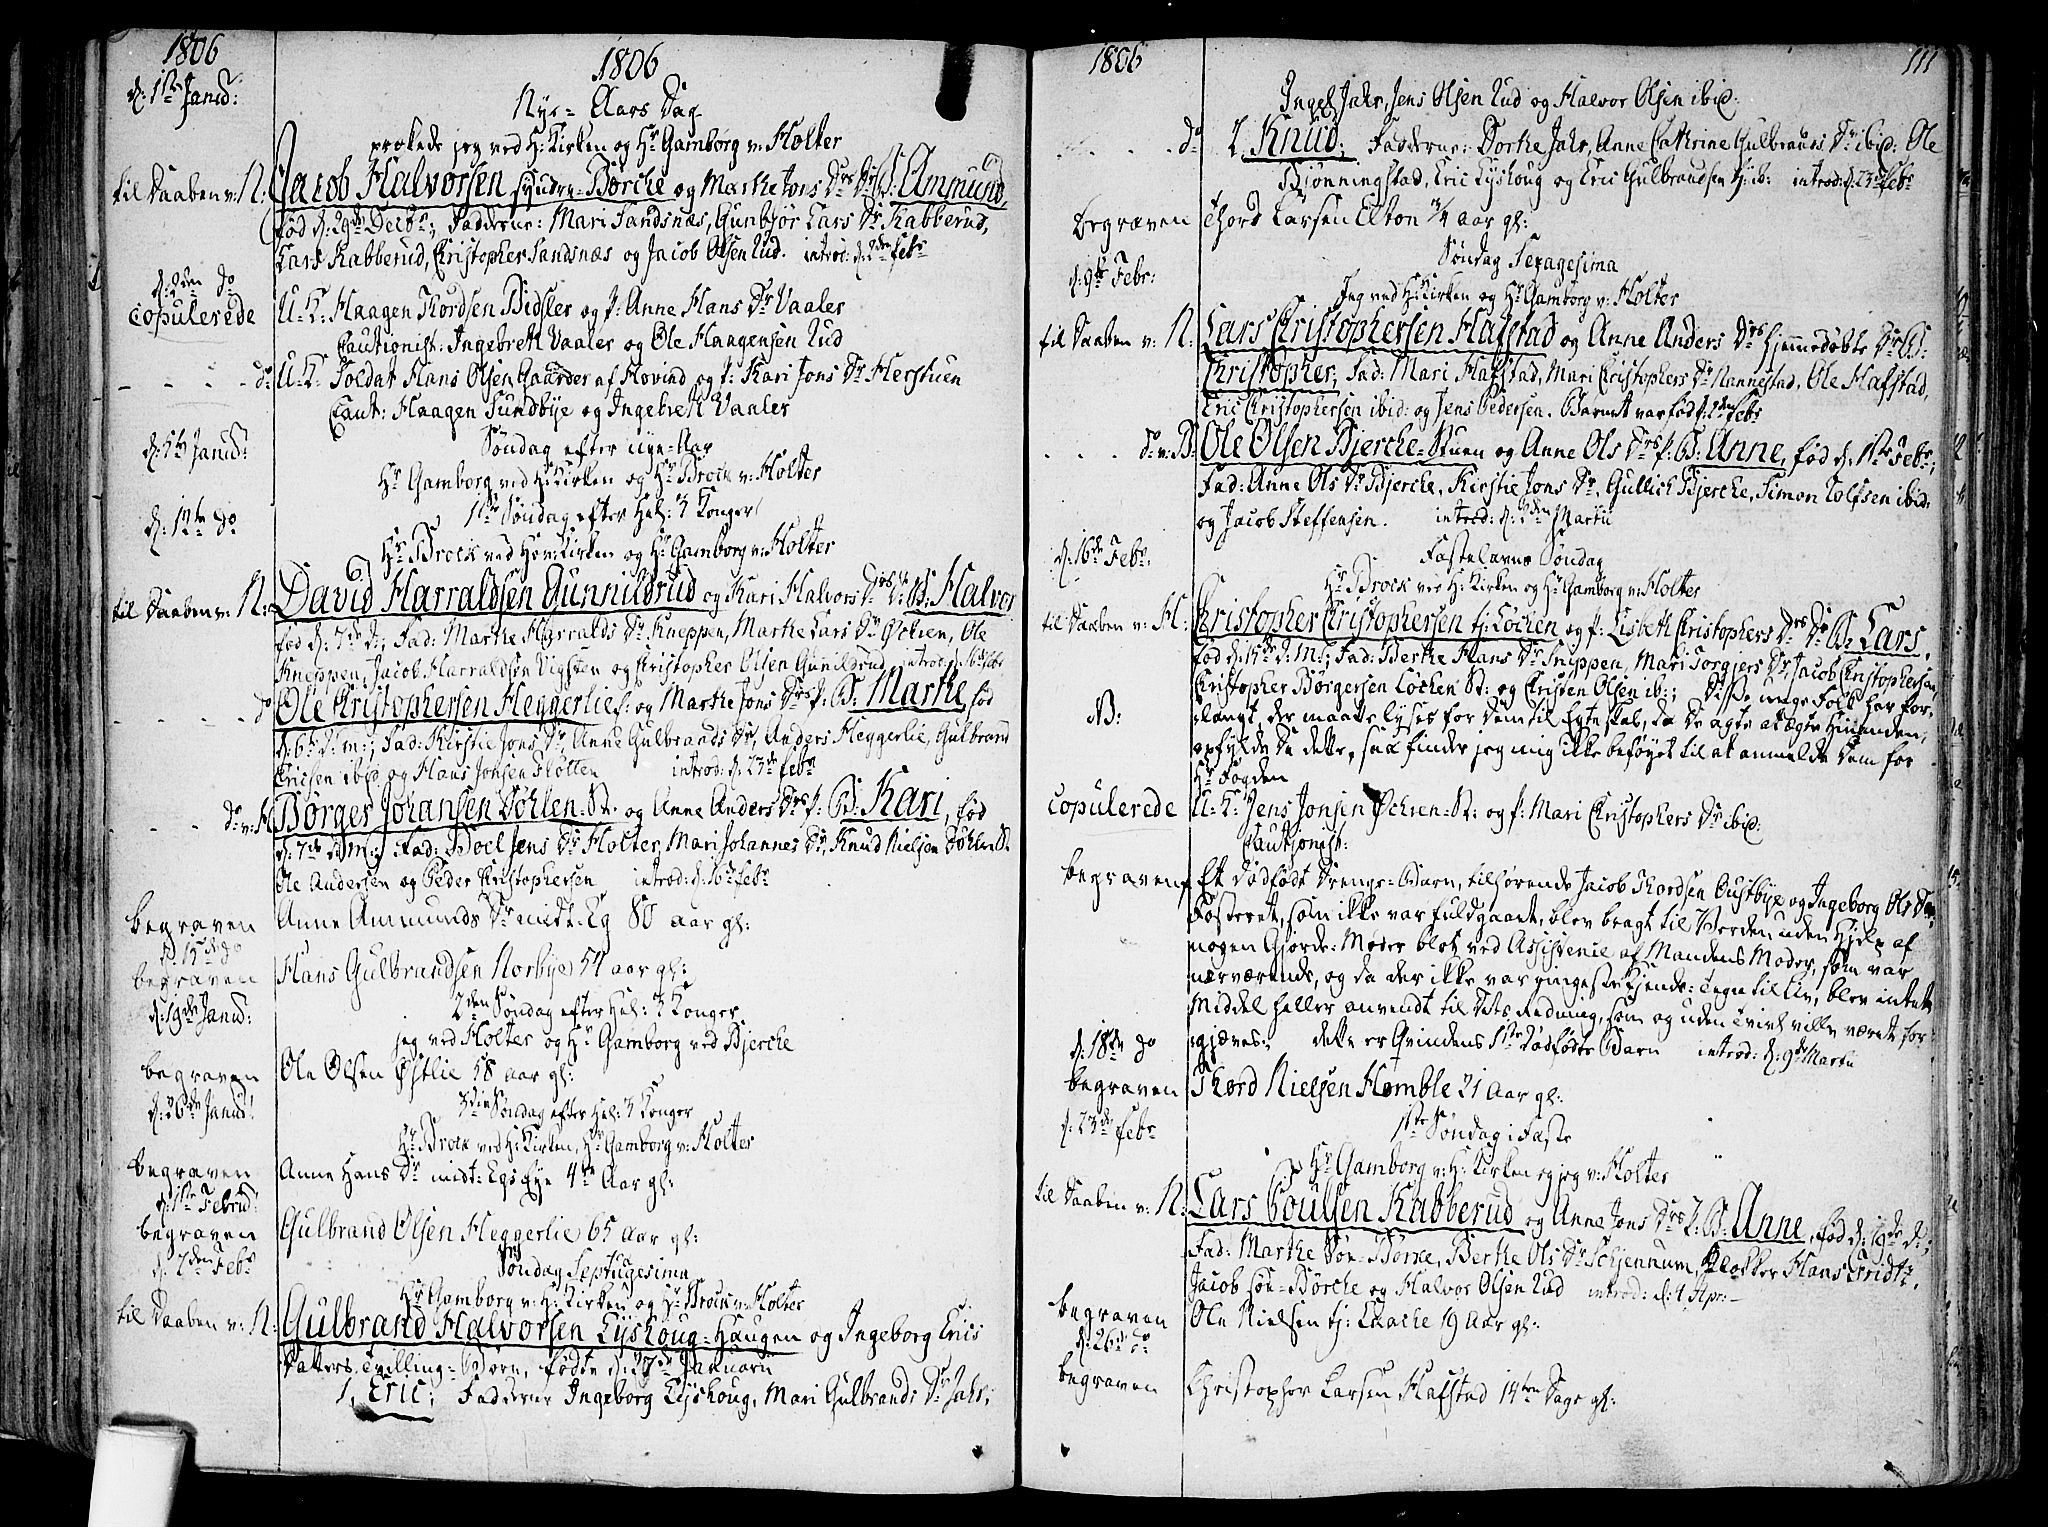 1806
1806
d: 1ste Janu:
Nye-Aars Dag
prækede jeg ved H: Kirken og Hr Gamborg v: Holter
til Daaben v: N: Jacob Halvorsen syndre-Børche og Marthe Jons Drs Dr B: Ammund,
fød d: 29de Decbr; Fadderne: Mari Sandsnæs, Gunbjør Lars Dr Kabberud,
Lars Kabberud, Christopher Sandsnæs og Jacob Olsen Rud. introd: d: 2den Febr
d: 2den do
copulerede U: K: Haagen Thordsen Bidsler og p: Anne Hans Dr Vaaler
Cautionist: Ingebreth Vaaler og Ole Haagensen Rud
do U: K: Soldat Hans Olsen Gaarder af Hovind og p: Kari Jons Dr Herstuen
Caut: Haagen Sundbye og Ingebreth Vaaler
d: 5te Janu: Søndag efter nye-Aar
Hr Gamborg ved H: Kirken og Hr Brock v: Holter
d: 12te do 1ste Søndag efter Hel: 3 Konger
Hr Brock ved Hov: Kirken og Hr Gamborg v: Holter
til Daaben v: N: David Harraldsen Gunnildrud og Kari Halvors Drs D: B: Halvor
fød d: 7de d:, Fad: Marthe Harralds Dr Kneppen, Marthe Lars Dr Ochren, Ole
Kneppen, Jacob Harraldsen Vigsten og Christopher Olsen Gunildrud, introd: d: 16de Febr
do Ole Christophersen Heggerlie f: og Marthe Jons Drs p: B: Marthe, fød
d: 6te d: m:; Fad: Kirstie Jons Dr, Anne Gulbrands Dr, Anders Heggerlie, Gulbrand
Ericsen ibid og Hans Jonsen Fløtten introd: d: 23de Febr
do v: H: Børger Johansen Døhlen-St: og Anne Anders Drs p: B: Kari, fød
d: 7de d: m:; Fad: Boel Jens Dr Holter, Mari Johannes Dr, Knud Nielsen Døhlen St:
Ole Andersen og Peder Christophersen introd: d: 16de Febr
begraven Anne Ammunds Dr midt-Eg 80 aar gl:
d: 15de do
begraven Hans Gulbrandsen Norbye 54 aar gl:
d: 19de Janu: 2den Søndag efter Hel: 3 Konger
jeg ved Holter og Hr Gamborg ved Bjerche
begraven Ole Olsen Østlie 58 aar gl:
d: 26de Janu: 3die Søndag efter Hel: 3 Konger
Hr Brock ved H: Kirken, Hr Gamborg v: Holter
begraven Anne Hans Dr midt: Egs Eye 4te Aar gl:
d: 1ste Febru:
begraven Gulbrand Olsen Heggerlie 65 aar gl:
d: 2den Febr Søndag Septugesima
Hr Gamborg v: H: Kirken og Hr Brock v: Holter
til Daaben v: N: Gulbrand Halvorsen Eyskoug-Haugen og Ingeborg Erics
Datters Tvilling-Børn, fødte d: 27de Januarii
1, Eric; Fadderne Ingeborg Eyskoug, Mari Gulbrands Dr Jahr,
1806
111
Ingeb Jahr, Jens Olsen Rud og Halvor Olsen ibid:
do 2, Knud; Fadderne: Dorthe Jahr, Anne Cathrine Gulbrands Dr ibid: Ole
Bjønningstad, Eric Eyskoug og Eric Gulbrandsen H: ib: introd: d: 23de Febr
begraven Thord Larsen Elton 3/4 aar gl:
d: 9de Febr: Søndag Sexagesima
Jeg ved H: Kirken og Hr Gamborg v: Holter
til Daaben v: N: Lars Christophersen Hafstad og Anne Anders Drs hjemmedøbte Dr B:
Christopher, Fad: Mari Hafstad, Mari Christophers Dr Nannestad, Ole Hafstad,
Eric Christophersen ibid: og Jens Pedersen. Barnet var fød d: 2den Febr
do v: B: Ole Olsen Bjerche-Stuen og Anne Ols Drs p: B: Anne, fød d: 1ste Febr;
Fad: Anne Ols Dr Bjerche, Kirstie Jons Dr, Gullich Bjerche, Simon Rolfsen ibid:
og Jacob Steffensen. introd: d: 2den Martii
d: 16de Febr. Fastelavns Søndag
Hr Brock ved H: Kirken og Hr Gamborg v: Holter
til Daaben v: H: Christopher Christophersen tj: Løchen og p: Lisbeth Christophers Drs Dr B: Lars,
fød d: 15de d: M:; Fad: Berthe Hans Dr Sneppen, Mari Torgjers Dr, Jacob Christophersen,
Christopher Børgersen Løchen St: og Christen Olsen ib:; Disse unge Folk har for-
NB: langt, der maatte lyses for dem til Egteskab, da de agte at ægte hinanden,
opfylde de dette, saa finder jeg mig ikke beføyet til at anmelde dem for
Hr Fogden
copulerede U: K: Jens Jonsen Ochren-St: og p: Mari Christophers Dr ibid:
Cautionist:
begraven Et dødfødt Drenge-Barn, tilhørende Jacob Thordsen Oustbye og Ingeborg Ols Dr,
Fosteret, som ikke var fuldgaaet, blev bragt til Verden uden Hielp af
nogen Gjorde-Moder blot ved Assistence af Mandens Moder, som var
nærværende, og da der ikke var ringeste Kjende-Tegn til Liv, blev intet
Middel heller anvendt til dets Redning, som og uden Tvivl ville været for-
gjæves; dette er Qvindens 1ste dødfødte Barn introd: d: 9de Martii
d: 18de do
begraven Thord Nielsen Homble 21 Aar gl:
d: 23de Febr 1ste Søndag i Faste
Hr Gamborg v: H: Kirken og jeg v: Holter
til Daaben v: N: Lars Poulsen Kabberud og Anne Jons Drs D: B: Anne, fød d: 19de d:;
Fad: Marthe Søn-Børke, Berthe Ols Dr Schjennum, Klokker Hans Tridt,
Jacob søn-Børche og Halvor Olsen Rud introd: d: 4 Apr:
begraven Ole Nielsen tj: Laache 19 Aar gl:
d: 26de do
begraven Christopher Larsen Hafstad 14ten Dage gl: